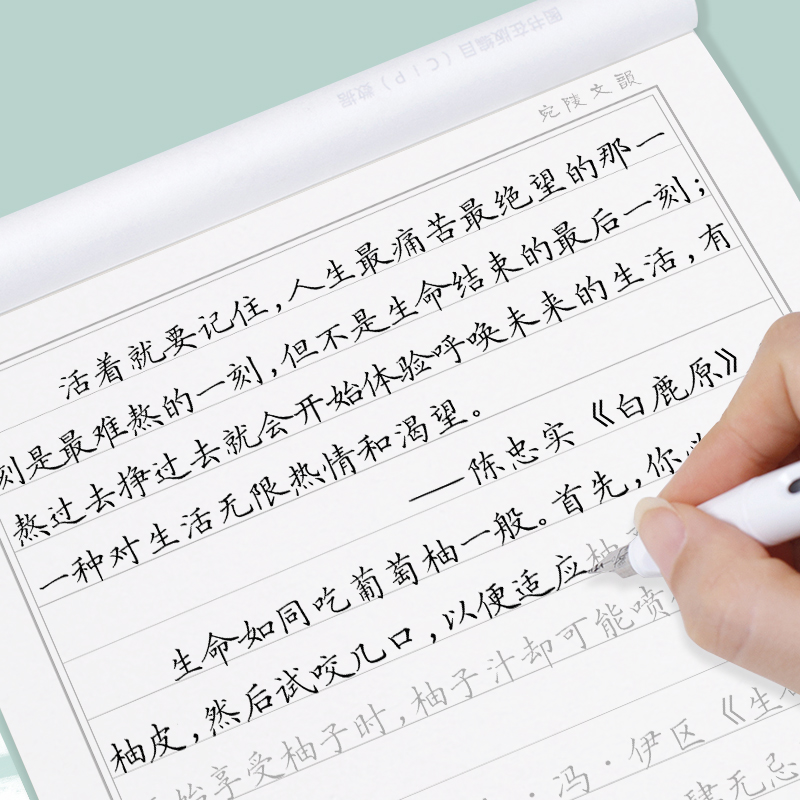 图书在版编目（CIP）数据
宛陵文韵
活着就要记住，人生最痛苦最绝望的那一
刻是最难熬的一刻，但不是生命结束的最后一刻；
熬过去挣过去就会开始体验呼唤未来的生活，有
一种对生活无限热情和渴望。
——陈忠实《白鹿原》
生命如同吃葡萄柚一般。首先，你
柚皮，然后试咬几口，以便适应柚
享受柚子时，柚子汁却可能喷
·冯·伊区《生
肆无忌